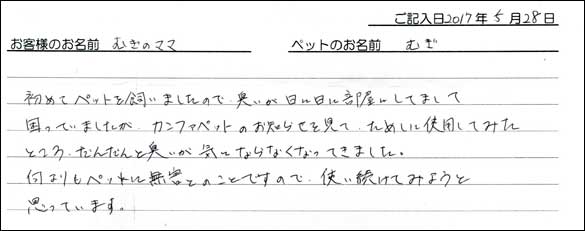 ご記入日2017年5月28日
お客様のお名前 むぎのママ ペットのお名前 むぎ
初めてペットを飼いましたので、臭いが日に日に部屋にしてまして
困っていましたが、カンファペットのお知らせを見て、ためしに使用してみた
ところ、だんだんと臭いが気にならなくなってきました。
何よりもペットに無害とのことですので、使い続けてみようと
思っています。